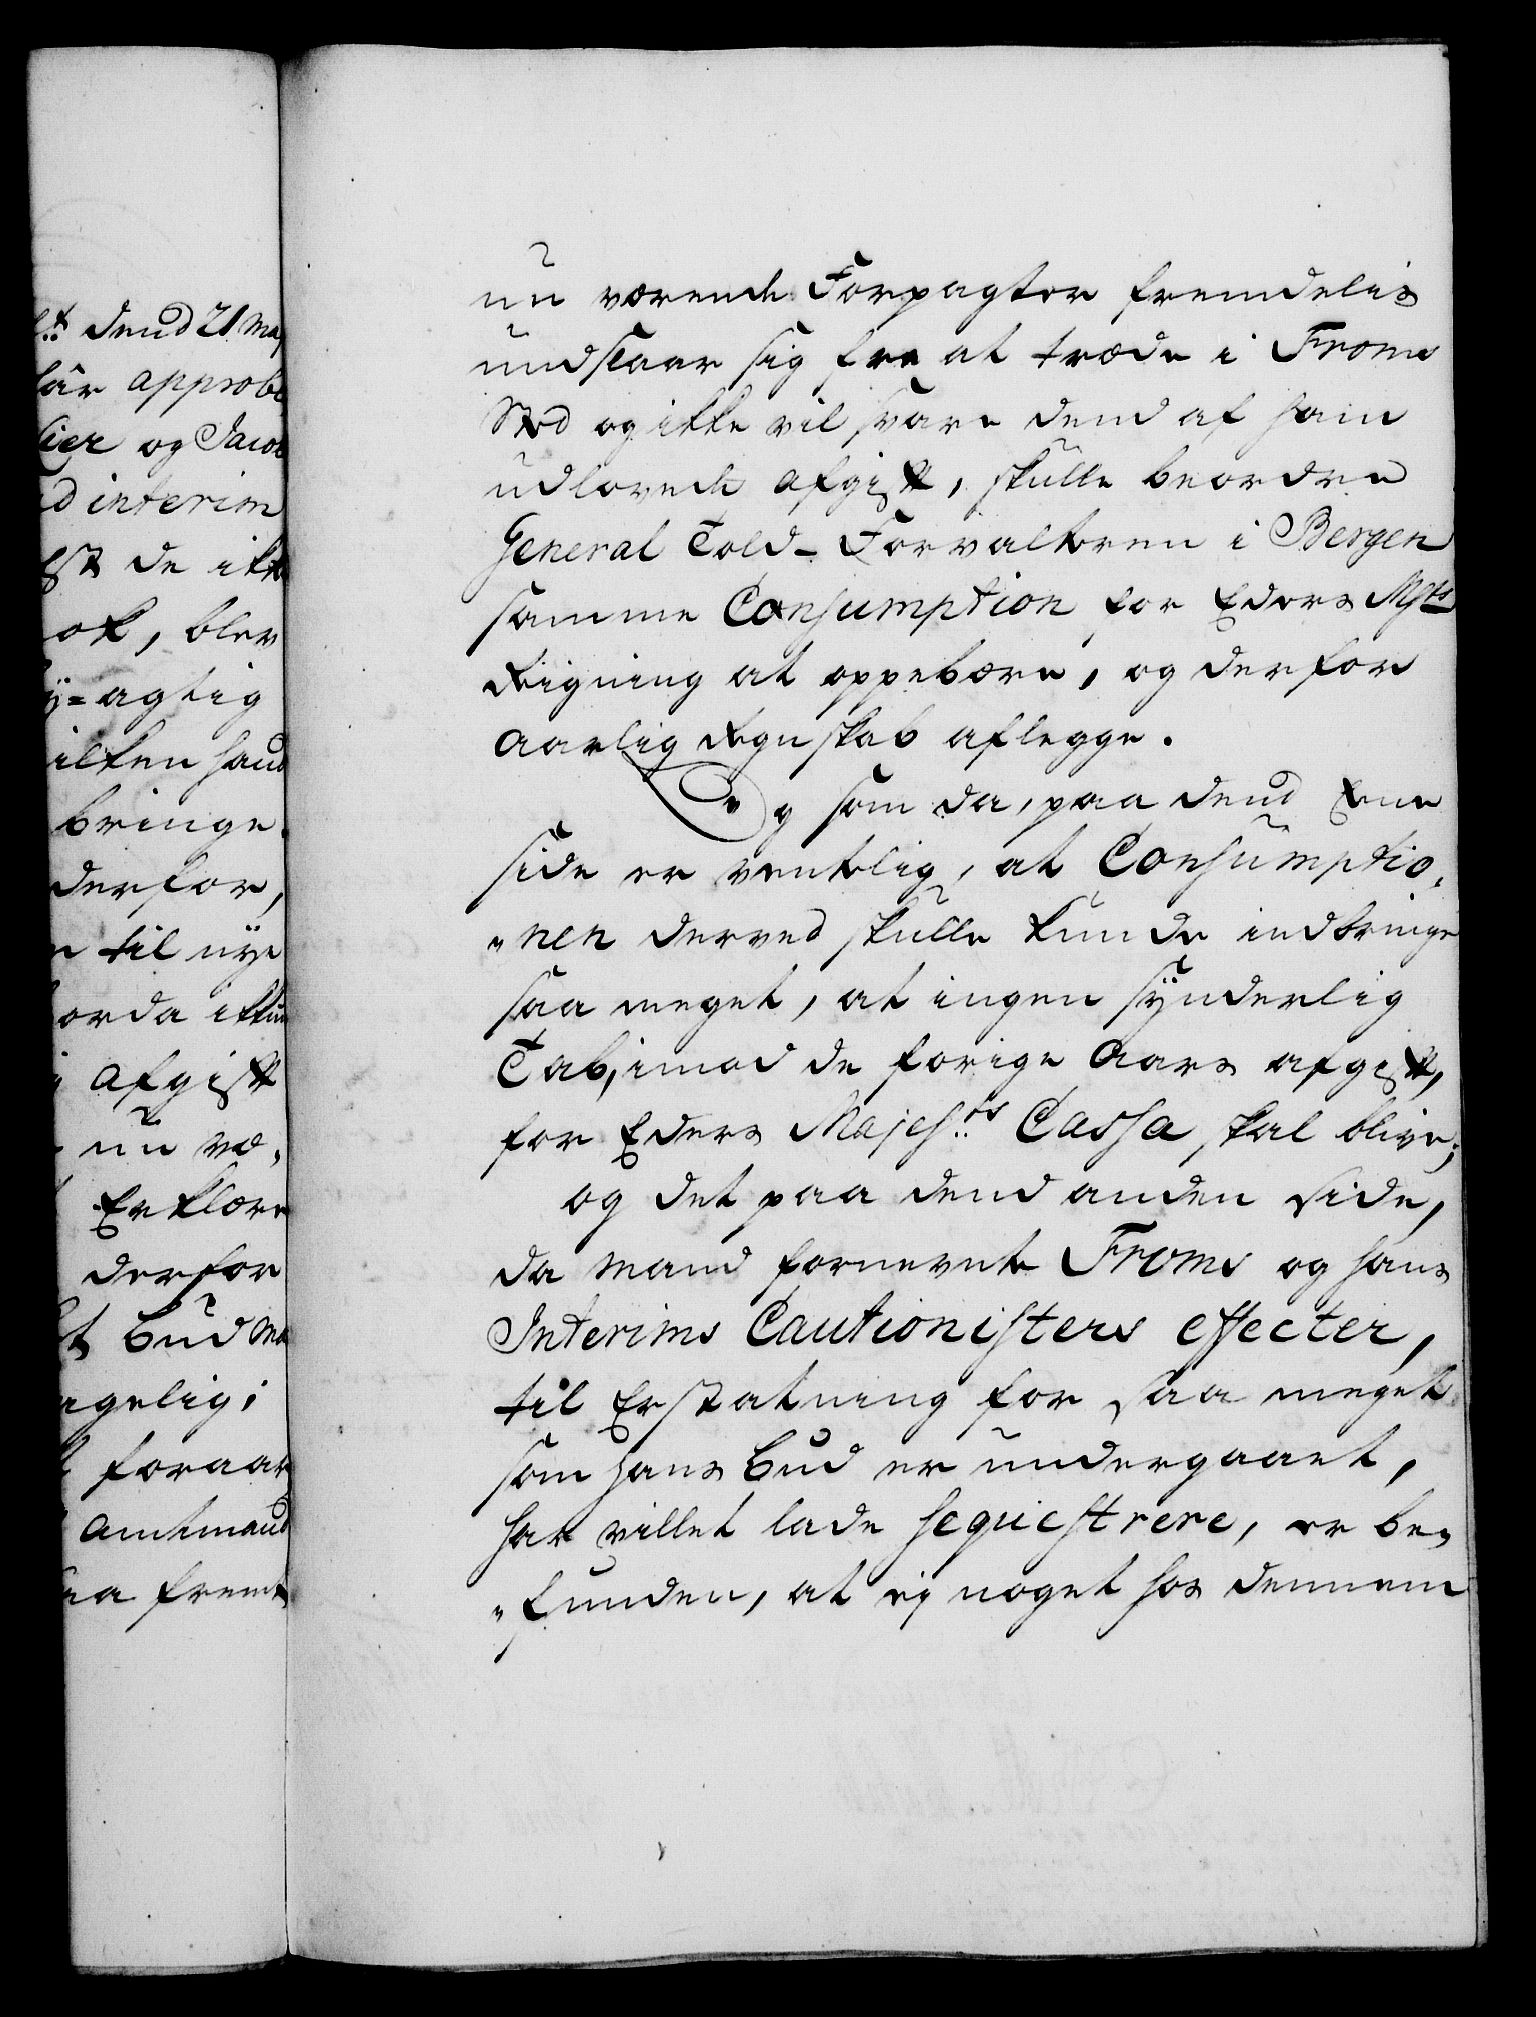 lt dend 21 Maj
lâr approbe
lier og Jacob
d interim
st de ikke
ok, blev
ÿ=agtig
ilken hand
bringe
derfor,
til nÿe
orda ikkun
afgift
nu væ,
Erklære
derfor
t bud Ma
agelig;
foraar
Amtmand
aa frem
nu værende Forpagter fremdelis
undslaar sig fra at træde i Froms
Stæd og ikke vil svare dend af ham
udlovede afgift, skulle beordre
General Told-Forvalteren i Bergen
samme Consumption for Eders Mayts
Reigning at oppebære, og derfor
aarlig Regnskab aflegge.
Og som da, paa dend Eene
side er ventelig, at Consumptio„
„nen derved skulle kunde indbringe
saa meget, at ingen sÿnderlig
Tab, imod de forige Aars afgift,
for Eders Majesties Cassa skal blive;
og det paa dend anden side,
da mand fornevnte Froms og hans
Interims Cautionisters effecter,
til Erstatning for saa meget
som hans bud er undergaaet,
har villet lade seqvestrere, er be„
„funden, at ej noget hos dennem